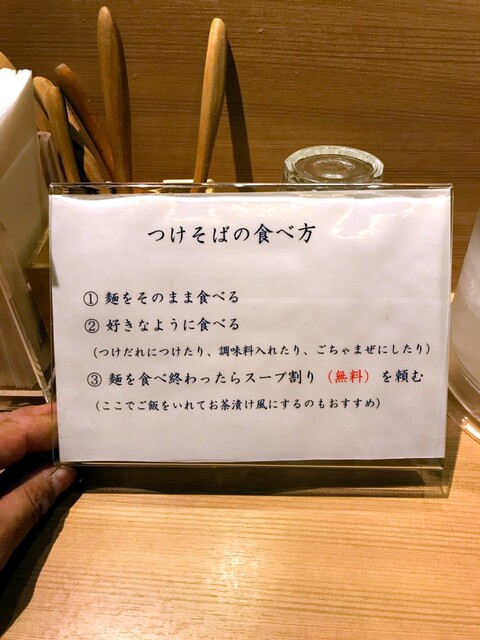 つけそばの食べ方
① 麺をそのまま食べる
② 好きなように食べる
(つけだれにつけたり、調味料入れたり、ごちゃまぜにしたり)
③ 麺を食べ終わったらスープ割り (無料) を頼む
(ここでご飯をいれてお茶漬け風にするのもおすすめ)